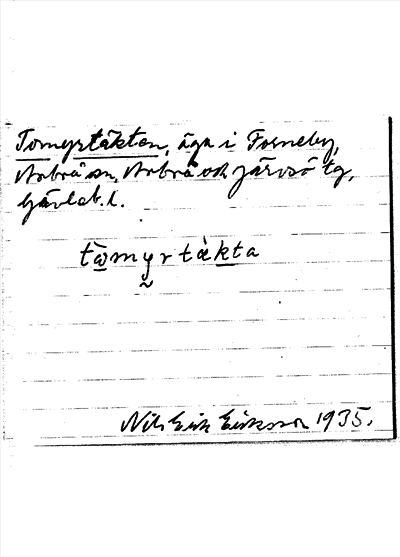 Tomyrtäkten, äga i Forneby,
Arbrå sn, Arbrå och Järvsö tg,
Gävleb. l.
tòmyrtàkta
Nils Erik Eriksson 1935.